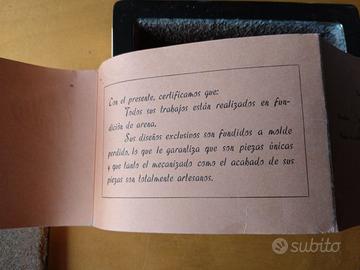 Con el presente, certificamos que:
Todos sus trabajos están realizados en fun-
dición de arena.
Sus diseños exclusivos son fundidos a molde
perdido, lo que le garantiza que son piezas únicas
y que tanto el mecanizado como el acabado de sus
piezas son totalmente artesanos.
subito